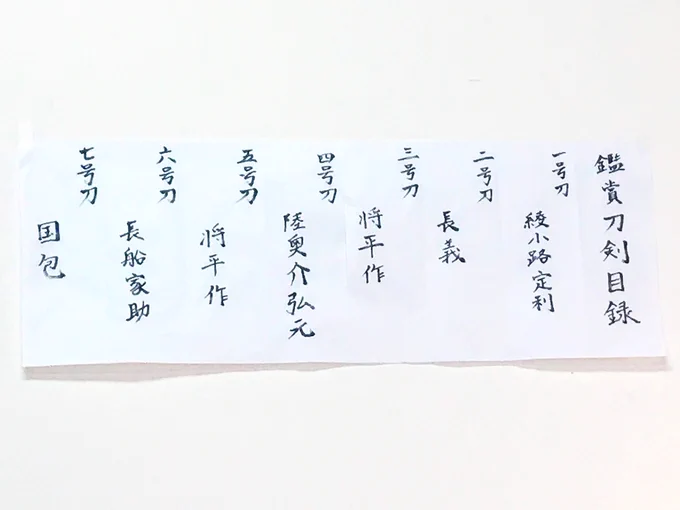 鑑賞刀剣目録
一号刀
綾小路定利
二号刀
長義
三号刀
将平作
四号刀
陸奥介弘元
五号刀
将平作
六号刀
長船家助
七号刀
国包